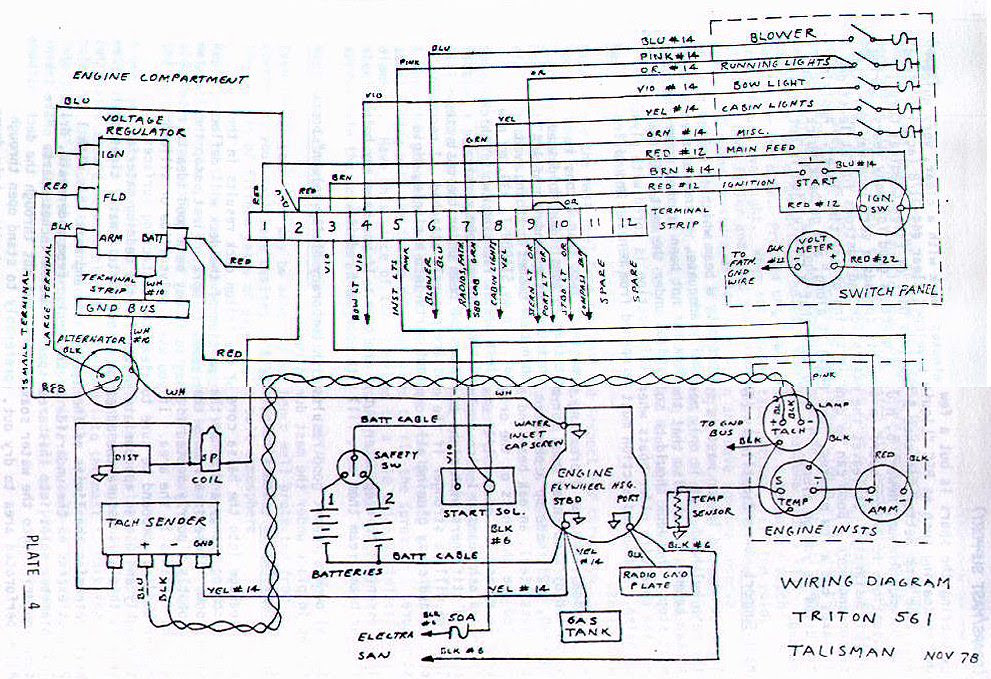 BLU
BLU #14
BLOWER
PINK
PINK #14
OR
OR. #14
RUNNING LIGHTS
VIO
VIO #14
BOW LIGHT
YEL
YEL #14
CABIN LIGHTS
GRN
GRN #14
MISC.
RED #12
MAIN FEED
BRN
BRN #14
START
BLU #14
RED #12
IGNITION
RED #12
IGN. SW
ENGINE COMPARTMENT
BLU
VOLTAGE
REGULATOR
IGN
RED
FLD
BLK
ARM
BATT
RED
RED
RED
OR
1 2 3 4 5 6 7 8 9 10 11 12
TERMINAL
STRIP
VOLT
METER
- +
TO
PATH.
GND
WIRE
BLK
RED #22
SWITCH PANEL
VIO
BOW LT VIO
INST LTS
PINK
BLOWER
BLU
RADIOS, PATH
SBD CAB GRN
CABIN LIGHTS
YEL
STERN LT OR
PORT LT OR
STBD LT OR
COMPASS
SPARE
SPARE
TERMINAL
STRIP
WH
#10
GND BUS
WH
#10
SMALL TERMINAL
LARGE TERMINAL
ALTERNATOR
BLK
RED
RED
WH
WH
PINK
BATT CABLE
WATER
INLET
CAPSCREW
VIO
SAFETY
SW
1 2
BATT CABLE
BATTERIES
START SOL.
BLK
#6
ENGINE
FLYWHEEL HSG.
STBD PORT
TO GND
BUS
BLK
BLK
+ -
TACH
LAMP
BLK
RED
BLK
S I
TEMP
+ -
AMM
ENGINE INSTS
TEMP
SENSOR
BLK #6
DIST
COIL
TACH SENDER
+ - GND
BLU
BLK
YEL #14
YEL #14
YEL
#14
BLK
RADIO GND
PLATE
GAS
TANK
50A
ELECTRA
SAN
BLK #6
WIRING DIAGRAM
TRITON 561
TALISMAN NOV 78
PLATE 4